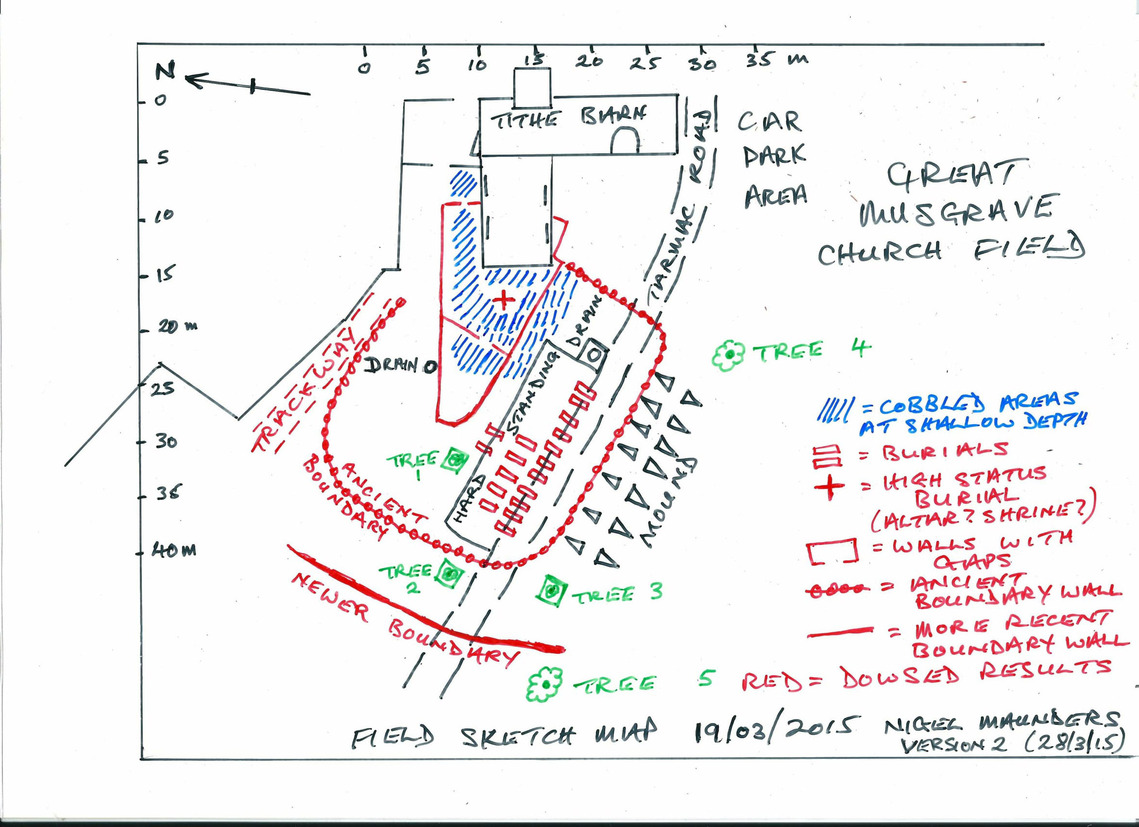 N
0 5 10 15 20 25 30 35 m
0
5
10
15
20 m
25
30
35
40 m
TITHE BARN
TARMAC ROAD
CAR
PARK
AREA
GREAT
MUSGRAVE
CHURCH FIELD
TRACKWAY
DRAIN
DRAIN
HARD STANDING
TREE
1
ANCIENT
BOUNDARY
TREE
2
TREE 3
TREE 4
TREE 5
MOUND
NEWER BOUNDARY
= COBBLED AREAS
AT SHALLOW DEPTH
= BURIALS
= HIGH STATUS
BURIAL
(ALTAR? SHRINE?)
= WALLS WITH
GAPS
= ANCIENT
BOUNDARY WALL
= MORE RECENT
BOUNDARY WALL
RED = DOWSED RESULTS
FIELD SKETCH MAP 19/03/2015 NIGEL MAUNDERS
VERSION 2 (28/3/15)